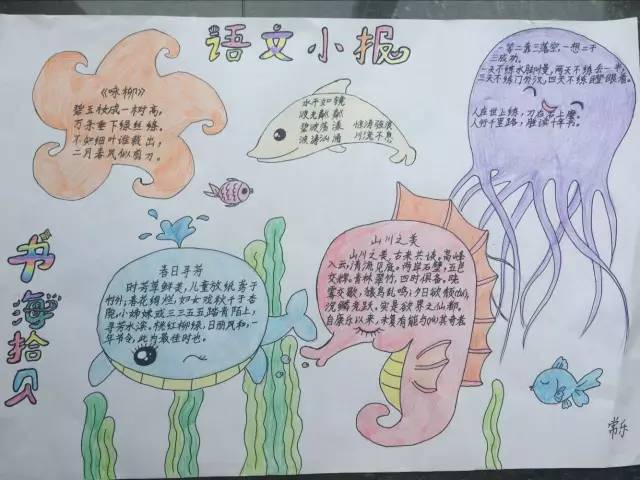 语文小报
《咏柳》
碧玉妆成一树高，
万条垂下绿丝绦。
不知细叶谁裁出，
二月春风似剪刀。
水平如镜
波光粼粼
碧波荡漾 惊涛骇浪
波涛汹涌 川流不息
一等二靠三落空，一想二干
三成功。
一天不练手脚慢，两天不练丢一半，
三天不练门外汉，四天不练瞪眼看。
人在世上练，刀在石上磨。
人行千里路，胜读十年书。
书海拾贝
春日寻芳
时芳草鲜美，儿童放纸鸢于
村外，春花绚烂，
小姊妹或三三五五踏青陌上，
寻芳水滨。桃红柳绿，日丽风和，一
年节令，此为最佳时也。
山川之美
山川之美，古来共谈。高峰
入云，清流见底。两岸石壁，五色
交辉。青林翠竹，四时俱备。晓
雾交歇，猿鸟乱鸣；夕日欲颓(tuí)，
沉鳞竞跃。实是欲界之仙都。
自康乐以来，未复有能与(yù)其奇者
常乐